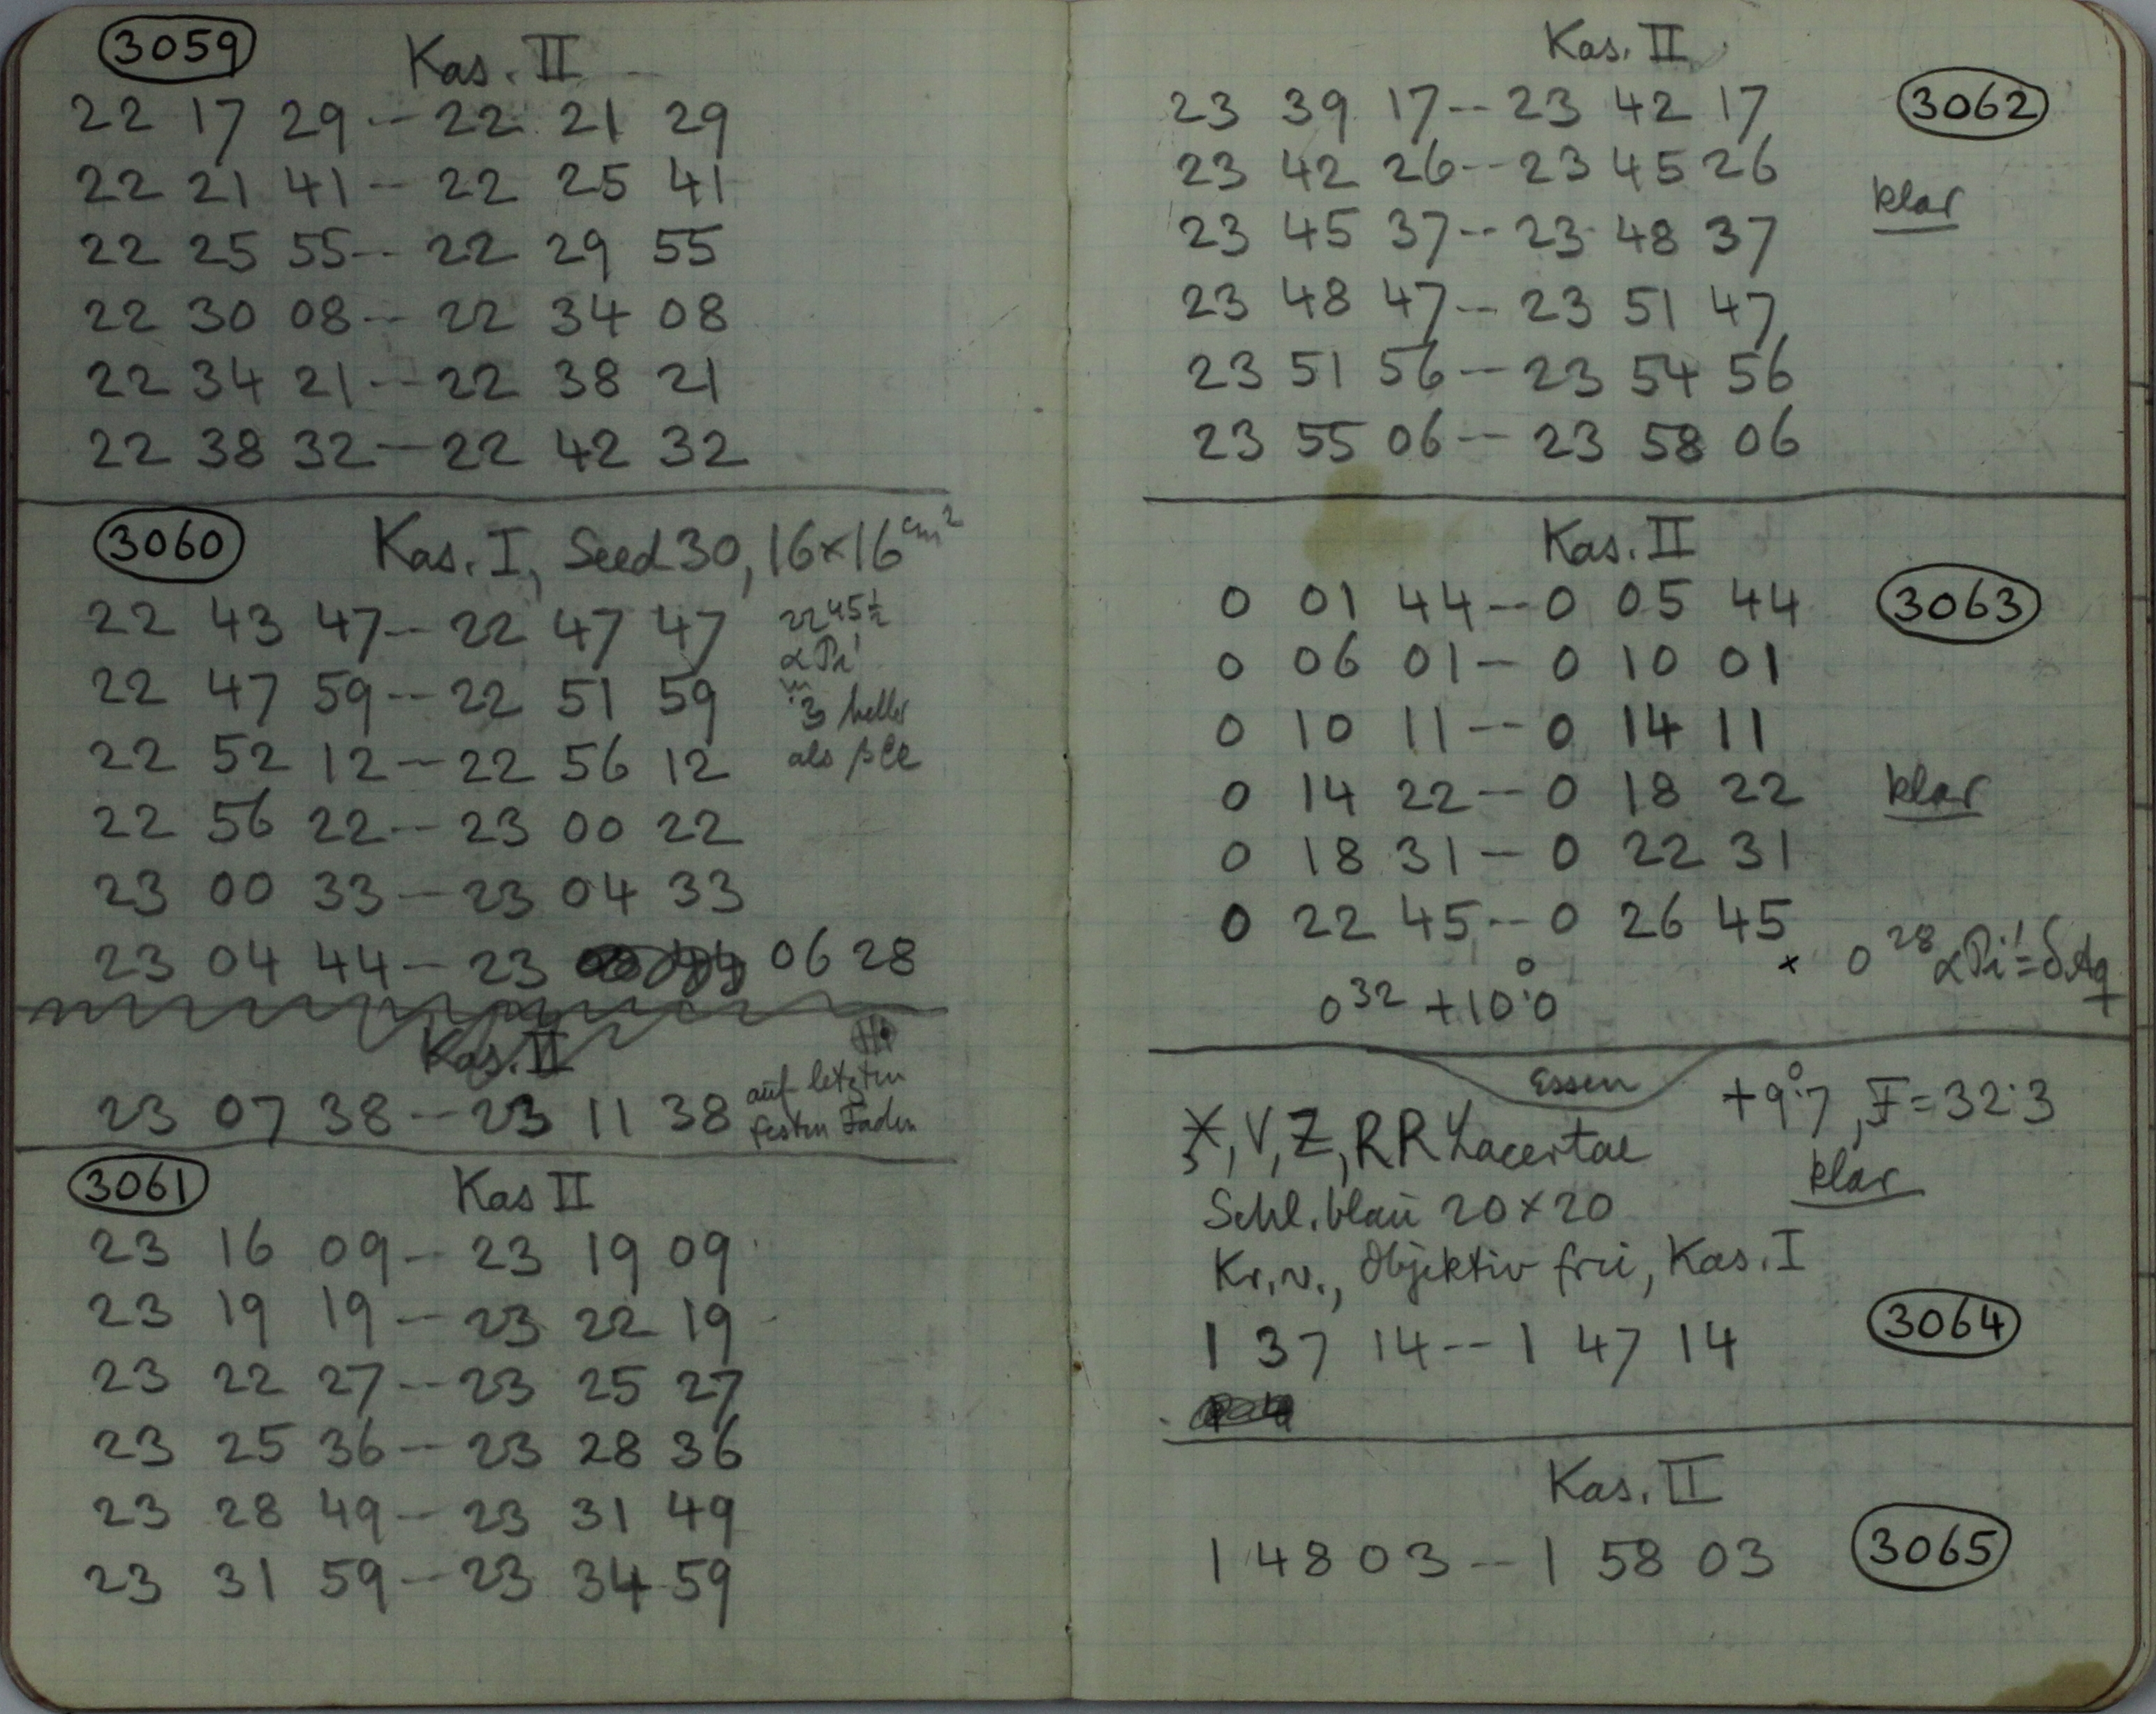 3059 Kas. II
22 17 29 -- 22 21 29
22 21 41 -- 22 25 41
22 25 55 -- 22 29 55
22 30 08 -- 22 34 08
22 34 21 -- 22 38 21
22 38 32 -- 22 42 32
3060 Kas. I, Seed 30, 16×16 cm²
22 43 47 -- 22 47 47
22 45½
22 47 59 -- 22 51 59
heller
22 52 12 -- 22 56 12
als β Ce
22 56 22 -- 23 00 22
23 00 33 -- 23 04 33
23 04 44 -- 23 06 28
Kas. II
23 07 38 -- 23 11 38
auf letzten
festen Faden
3061 Kas II
23 16 09 -- 23 19 09
23 19 19 -- 23 22 19
23 22 27 -- 23 25 27
23 25 36 -- 23 28 36
23 28 49 -- 23 31 49
23 31 59 -- 23 34 59
Kas. II
23 39 17 -- 23 42 17 3062
23 42 26 -- 23 45 26
klar
23 45 37 -- 23 48 37
23 48 47 -- 23 51 47
23 51 56 -- 23 54 56
23 55 06 -- 23 58 06
Kas. II
0 01 44 -- 0 05 44 3063
0 06 01 -- 0 10 01
0 10 11 -- 0 14 11
0 14 22 -- 0 18 22 klar
0 18 31 -- 0 22 31
0 22 45 -- 0 26 45
× 0 28 α Pi! = δ Aq
0 32 +10°.0
Essen
+9°.7, F = 32.3
X, V, Z, RR Lacertae
klar
Schl. blau 20×20
Kr. v., Objektiv frei, Kas. I
1 37 14 -- 1 47 14 3064
Kas. II
1 48 03 -- 1 58 03 3065